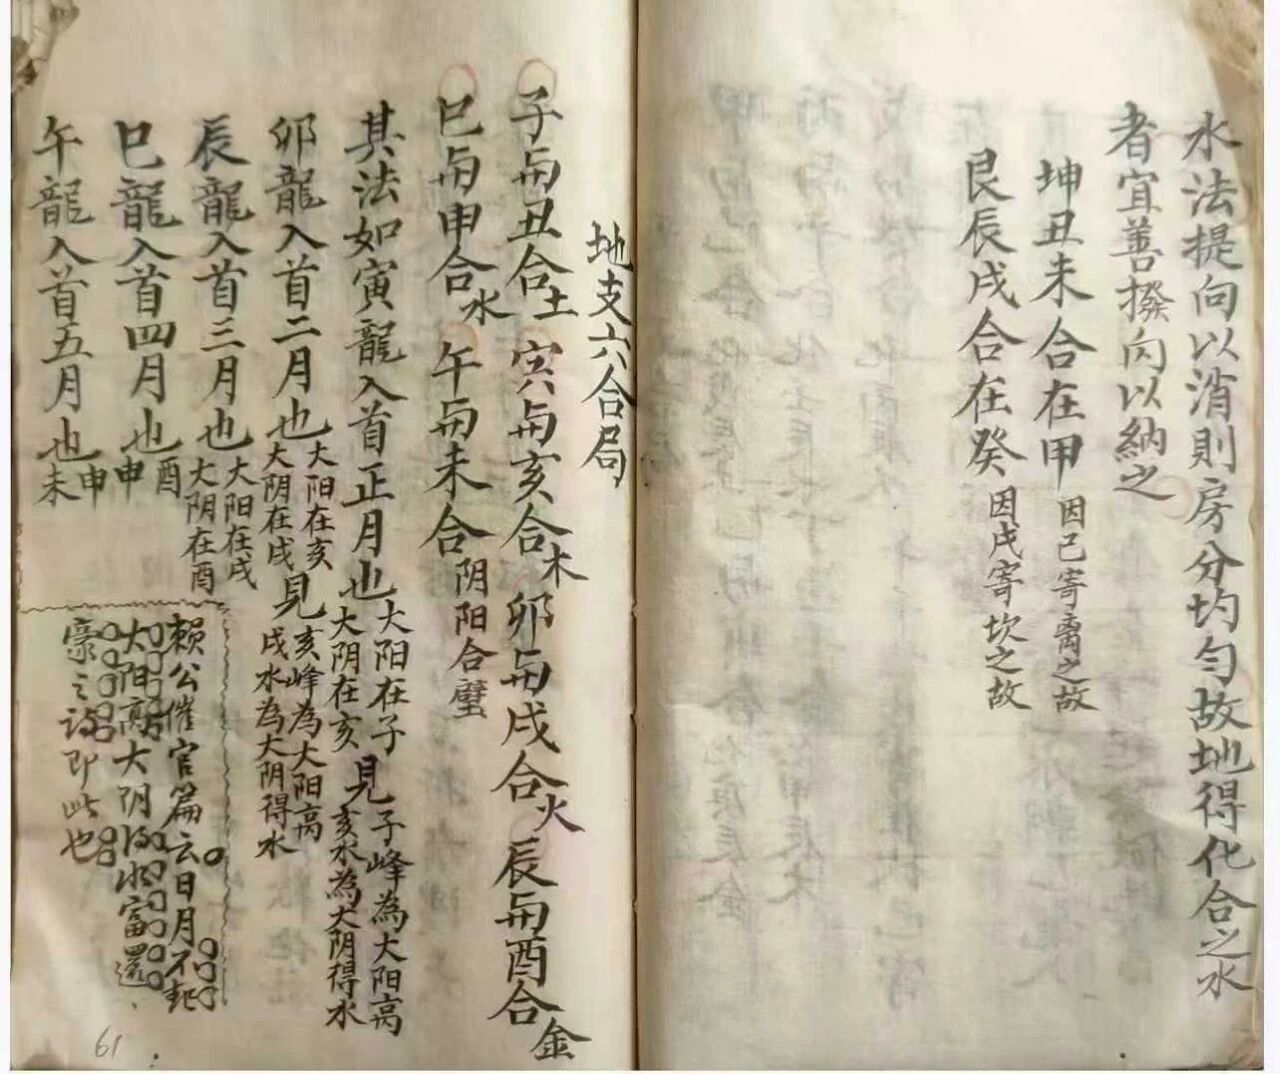 水法提向以消則房分均勻故地得化合之水
者宜善撥向以納之
坤丑未合在甲 因己寄离之故
艮辰戌合在癸 因戊寄坎之故
地支六合局
子与丑合土 寅与亥合木 卯与戌合火 辰与酉合金
巳与申合水 午与未合 阴阳合璧
其法如寅龍入首正月也 大阳在子 大阴在亥 見子峰為大阳高 亥水為大阴得水
卯龍入首二月也 大阳在亥 大阴在戌 見亥峰為大阳高 戌水為大阴得水
辰龍入首三月也 大阳在戌 大阴在酉
巳龍入首四月也 酉 申
午龍入首五月也 申 未
賴公催官篇云日月不起
大阳高大阴得水富還
豪之訣即此也
61